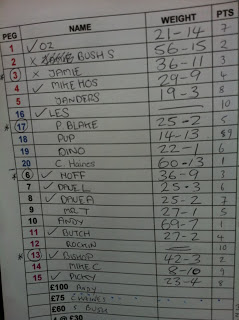 PEG NAME WEIGHT PTS
1 ✓ OZ 21-14 7
2 x BUSH S 56-15 2
* 3 x JAMIE 36-11 3
4 ✓ MIKE HOS 29-9 4
5 SANDERS 19-3 8
16 ✓ LES — 10
* 17 P. BLAKE 25-2 5
18 PUP 14-13 9
19 DINO 22-1 6
20 C. Haines 60-13 1
* 6 ✓ HUFF 36-9 3
7 ✓ DAVE L 25-3 6
8 ✓ DAVE A 25-2 7
9 MR T 27-1 5
10 ANDY 69-7 1
11 ✓ BUTCH 27-2 4
12 ROCKIN — 10
* 13 ✓ BISHOP 42-3 2
14 MIKE C 8-10 9
15 ✓ RICKY 23-4 8
£100 ANDY
£75 C HAINES
£60 S. BUSH
£30